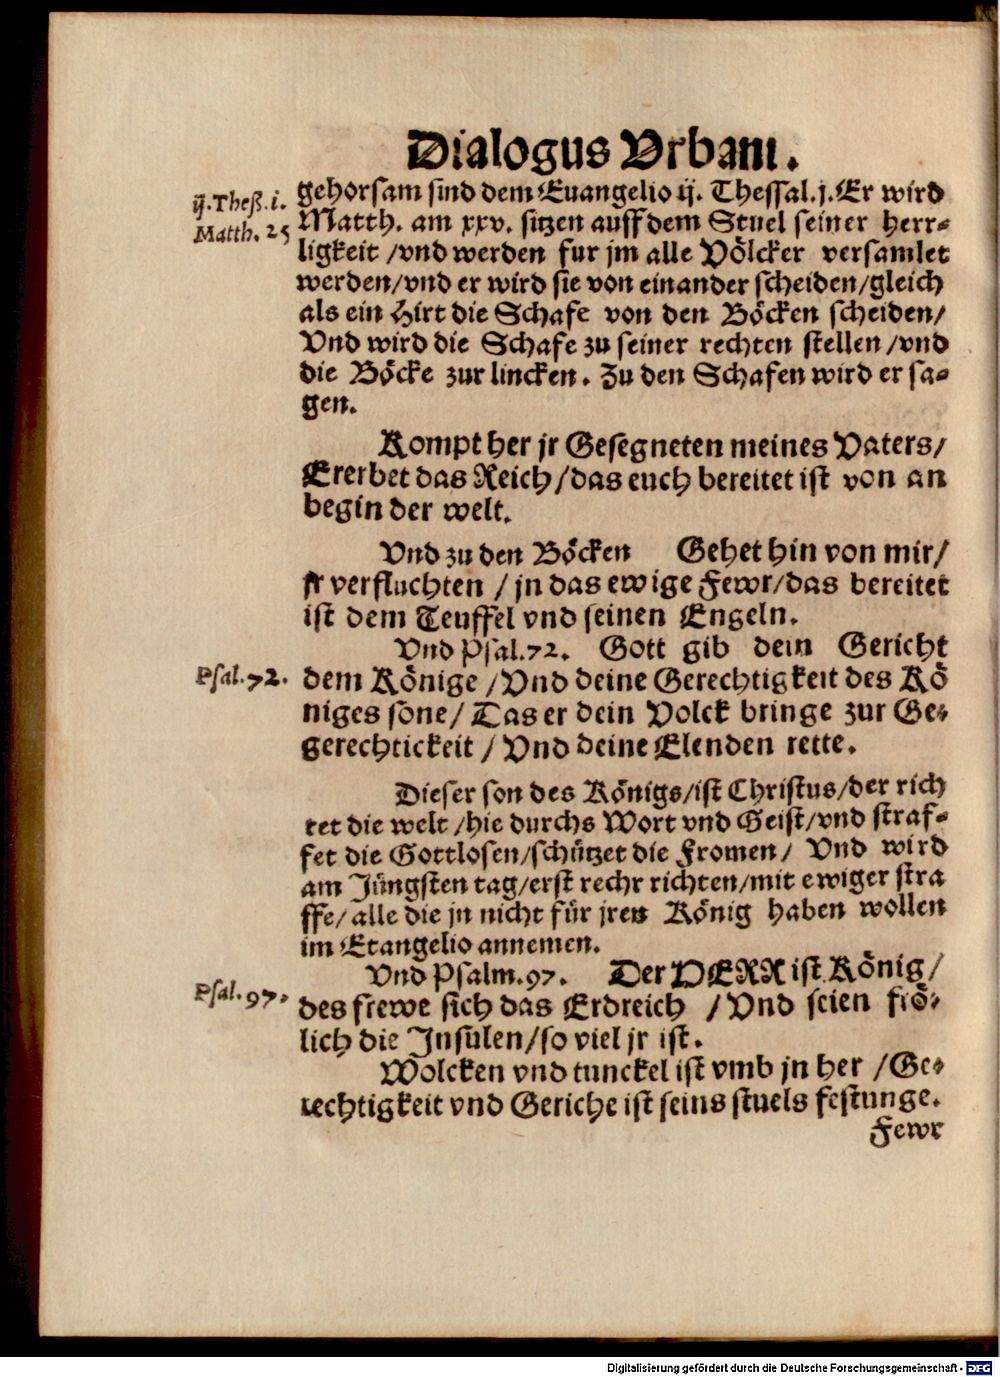 Dialogus Vrbani.
ij. Theß. i.
gehorsam sind dem Euangelio ij. Thessal. j. Er wird
Matth. 25
Matth. am xxv. sitzen auff dem Stuel seiner herr-
ligkeit / vnd werden fur jm alle Völcker versamlet
werden / vnd er wird sie von einander scheiden / gleich
als ein Hirt die Schafe von den Böcken scheiden /
Vnd wird die Schafe zu seiner rechten stellen / vnd
die Böcke zur lincken. Zu den Schafen wird er sa-
gen.
Kompt her jr Gesegneten meines Vaters /
Ererbet das Reich / das euch bereitet ist von an
begin der welt.
Vnd zu den Böcken Gehet hin von mir /
jr verfluchten / jn das ewige Fewr / das bereitet
ist dem Teuffel vnd seinen Engeln.
Vnd Psal. 72. Gott gib dein Gericht
Psal. 72.
dem Könige / Vnd deine Gerechtigkeit des Kö
niges sone / Das er dein Volck bringe zur Ge-
gerechtickeit / Vnd deine Elenden rette.
Dieser son des Königs / ist Christus / der rich
tet die welt / hie durchs Wort vnd Geist / vnd straf-
fet die Gottlosen / schützet die Fromen / Vnd wird
am Jüngsten tag / erst rechr richten / mit ewiger stra
ffe / alle die jn nicht für jren König haben wollen
im Etangelio annemen.
Vnd Psalm. 97. Der HERR ist König /
Psal. 97.
des frewe sich das Erdreich / Vnd seien frö-
lich die Insulen / so viel jr ist.
Wolcken vnd tunckel ist vmb jn her / Ge-
rechtigkeit vnd Geriche ist seins stuels festunge.
Fewr
Digitalisierung gefördert durch die Deutsche Forschungsgemeinschaft - DFG